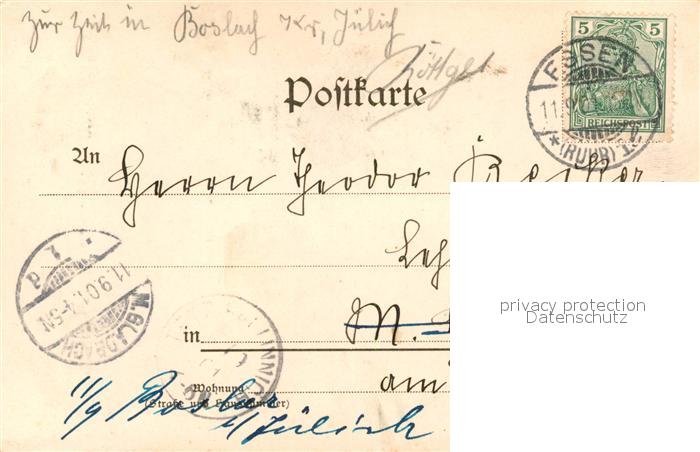 Zur Zeit in Boslach Kr. Jülich
5 5
REICHSPOST
ESSEN
11.9.
*(RUHR)*
Postkarte
An
Herrn Theodor
Leh
M.GLADBACH
11.9.01.4-5N
in M.
am
Wohnung
(Straße und Hausnummer)
11/9 Boslar
b/Jülich
privacy protection
Datenschutz